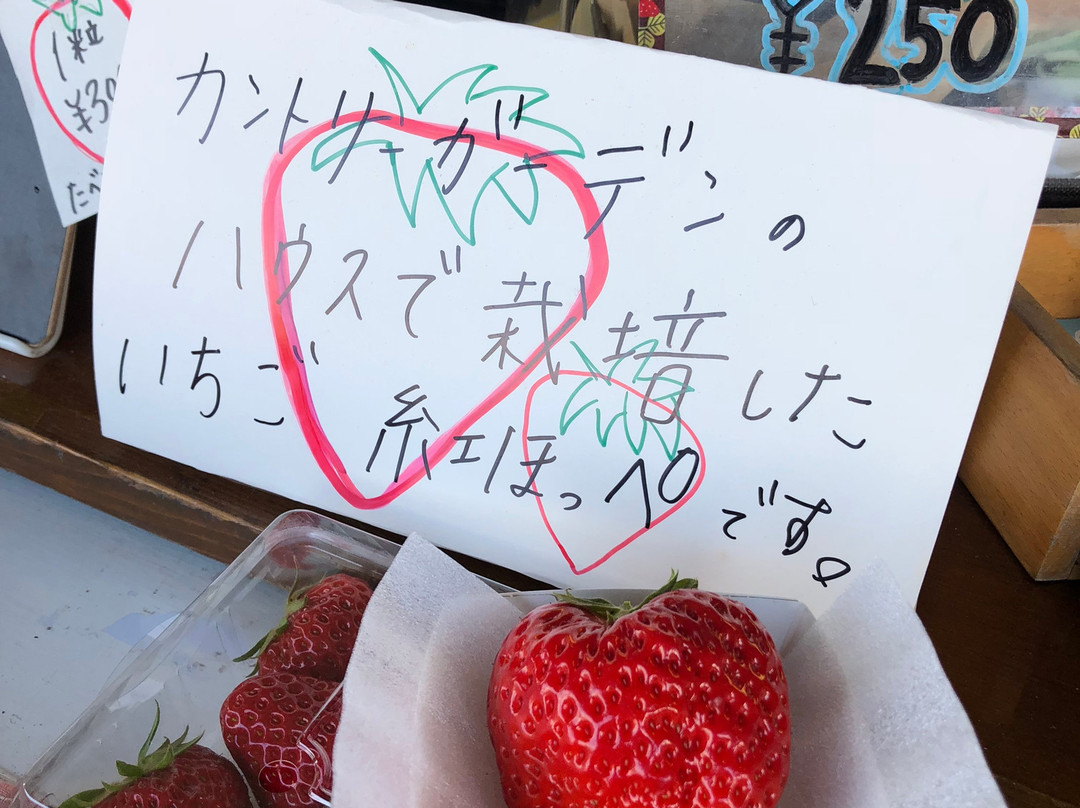 1粒
¥30
たべ
¥250
カントリーガーデンの
ハウスで栽培した
いちご 紅ほっぺ
です。